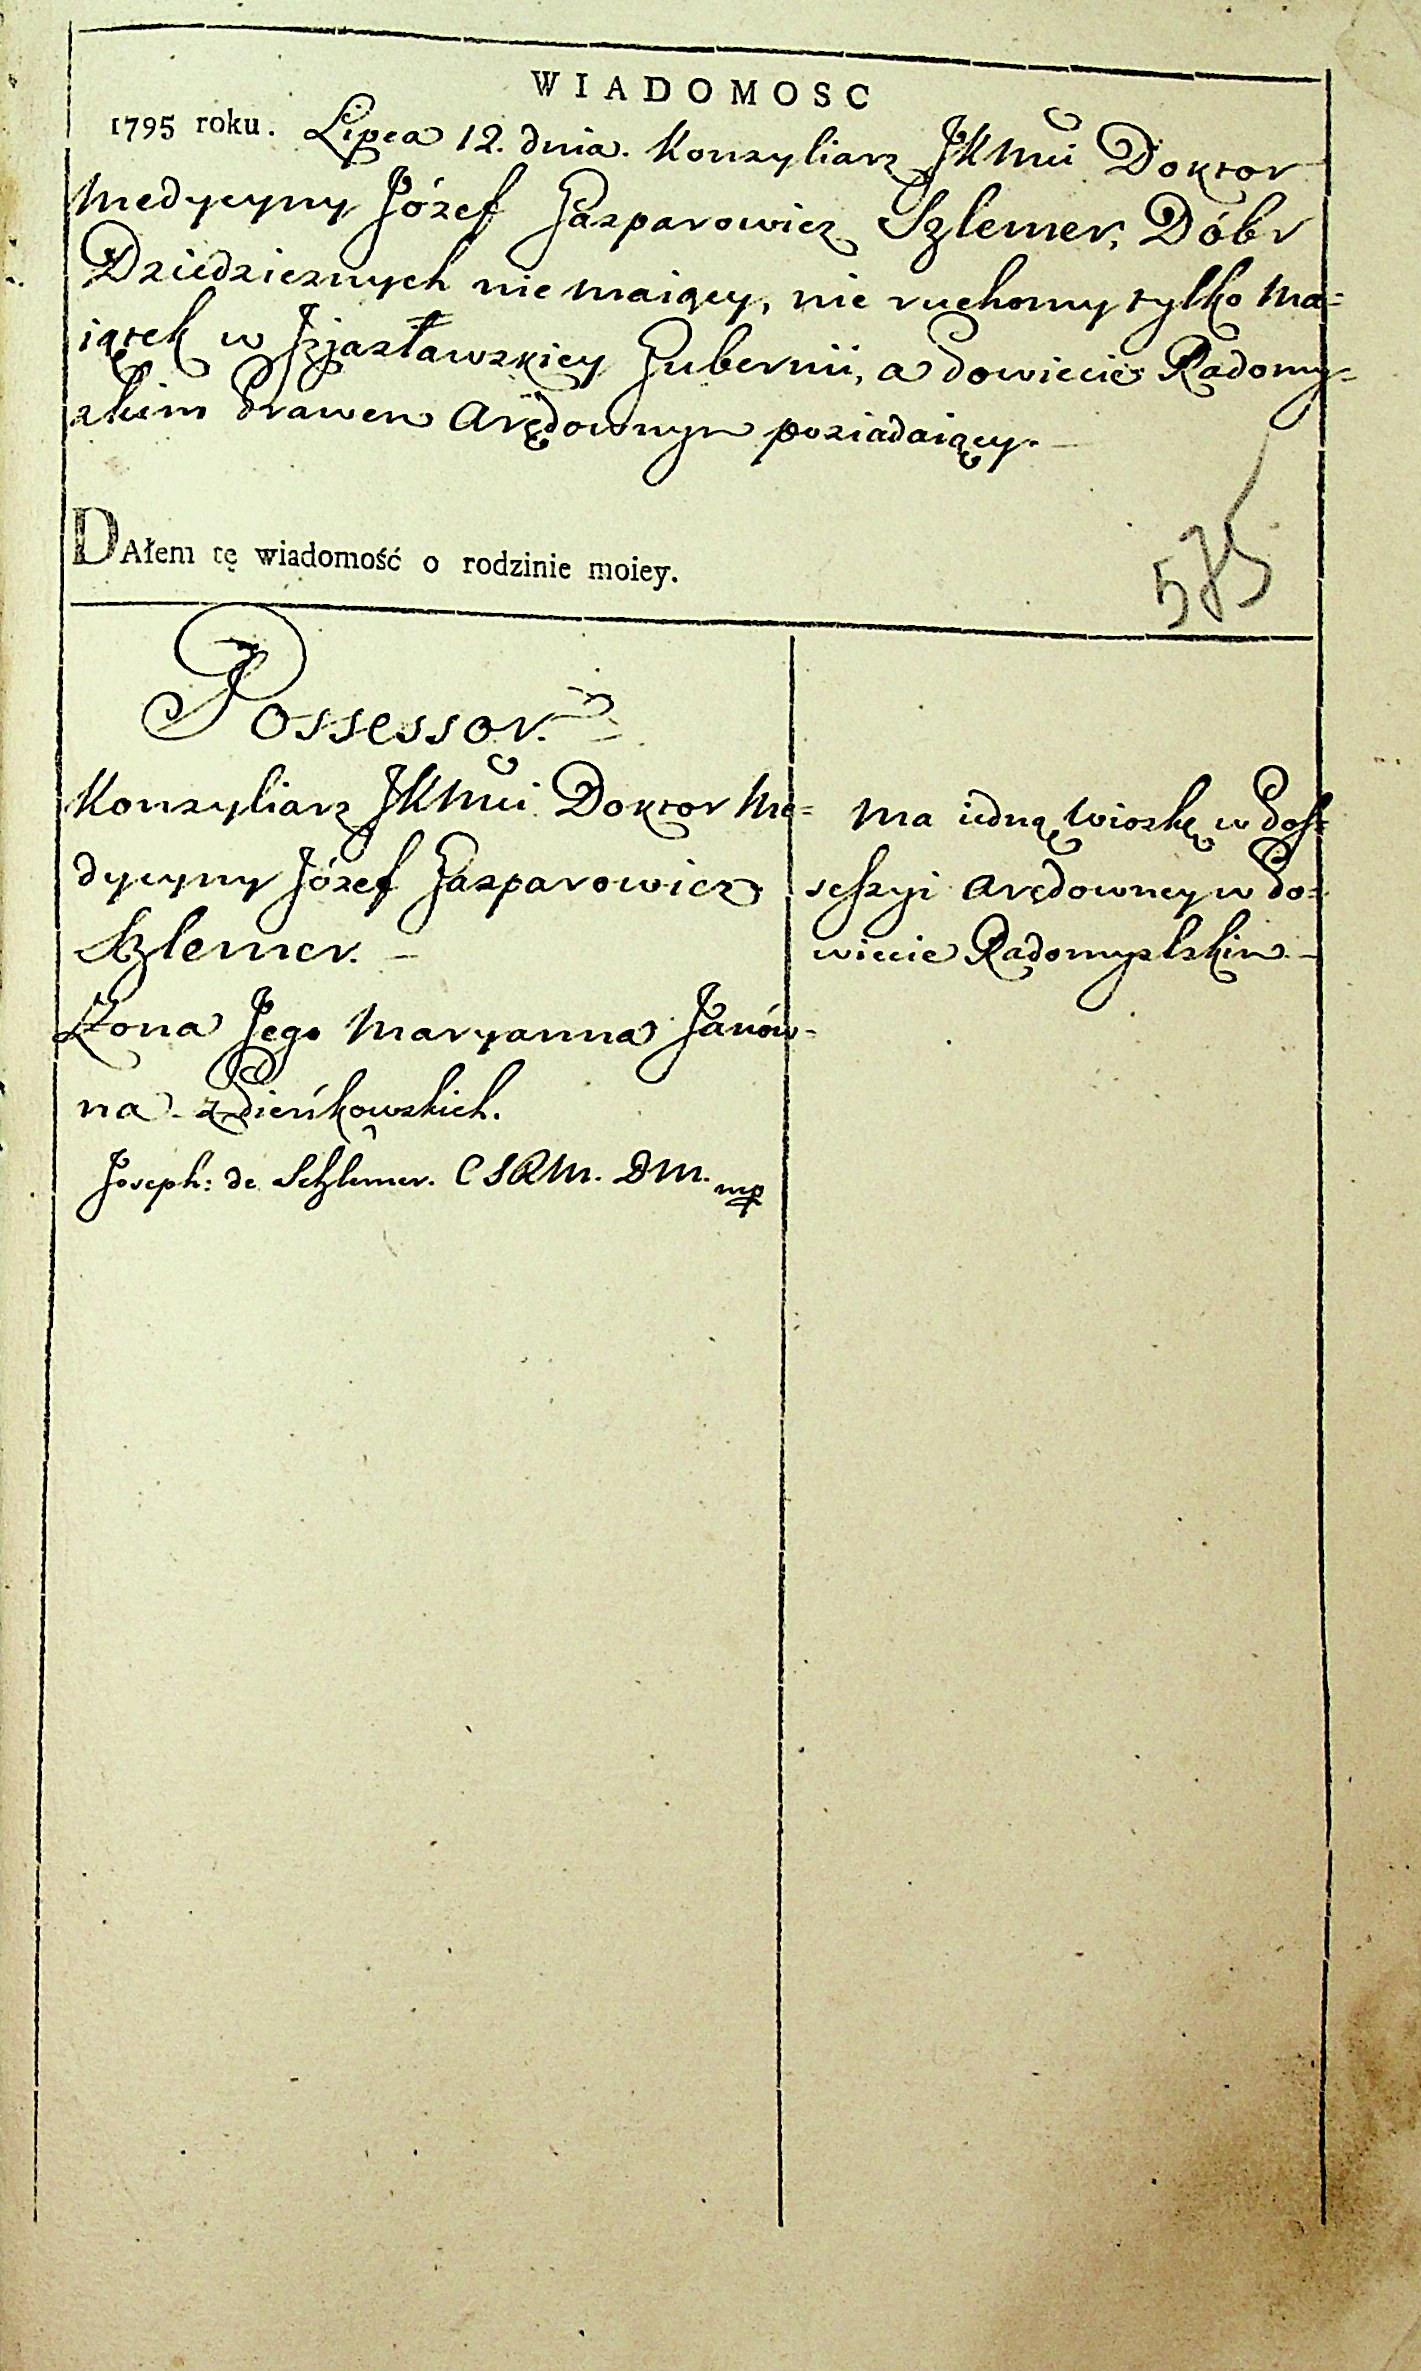 WIADOMOSC
1795 roku. Lipca 12. dnia. Konsyliarz JKMci Doktor
Medycyny Józef Gasparowicz Szlemer, Dóbr
Dziedzicznych nie maiący, nie ruchomy tylko Ma=
iątek w Izjasławskiey Gubernii, a Powiecie Radomy=
slkim Prawem Arędownym posiadaiący.
575
DAłem tę wiadomość o rodzinie moiey.
Possessor.
Konsyliarz JKMci Doktor Me=
dycyny Józef Gasparowicz
Szlemer. –
Żona Jego Maryanna Janów-
na z Pieńkowskich.
Joseph: de Schlemer. CSRM. DM. mp
Ma iedną Wioskę w Pos=
sessyi Arędowney w Po=
wiecie Radomyslskim. –